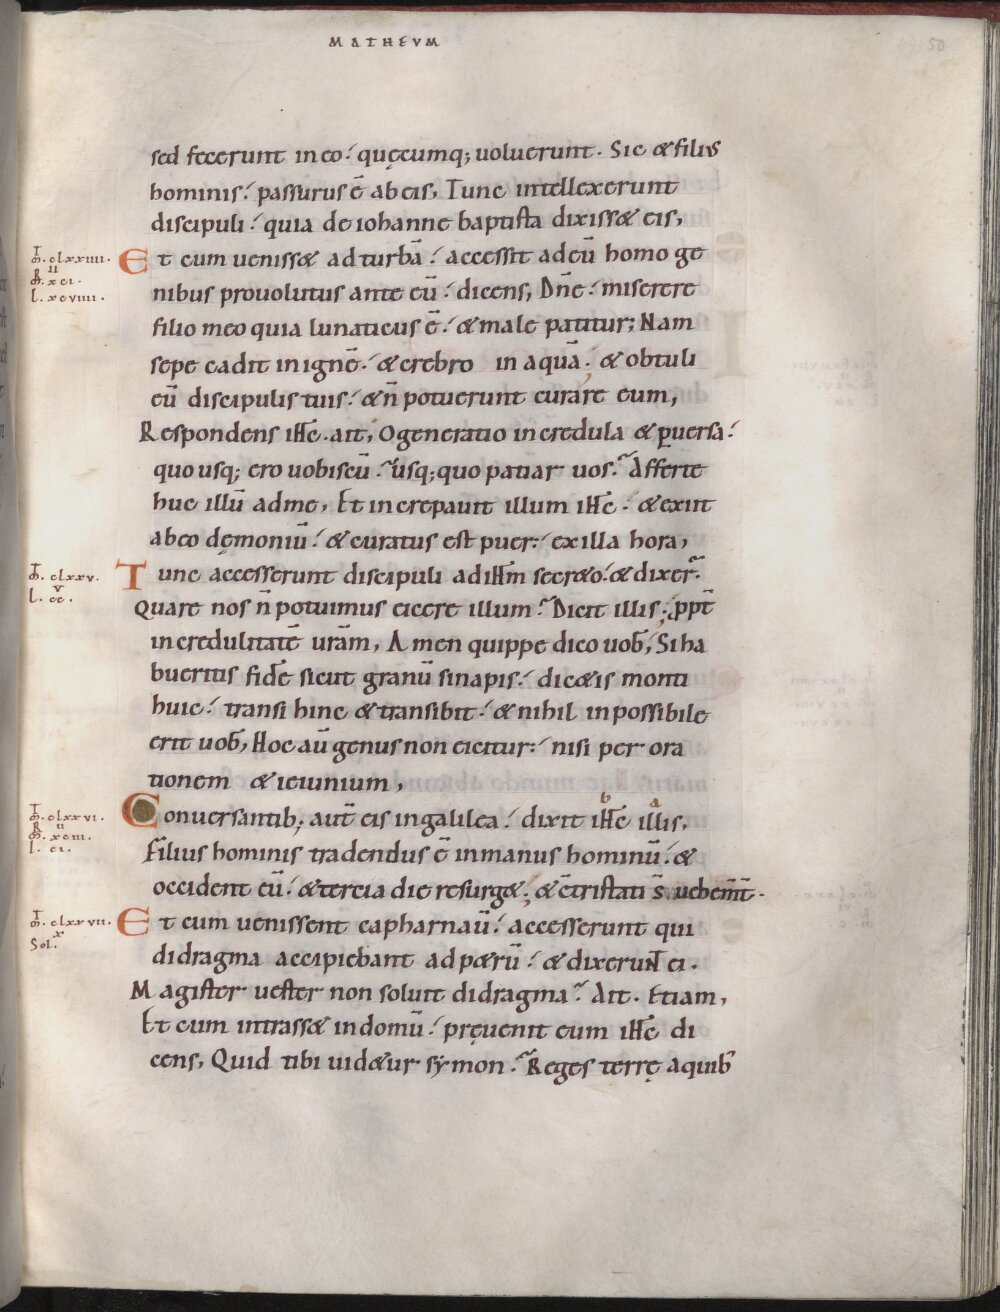 MATHEVM
50
sed fecerunt in eo ؛ quęcumq; uoluerunt. Sic & filius
hominis ؛ passurus ē ab eis, Tunc intellexerunt
discipuli ؛ quia de iohanne baptista dixiss& eis,
M̄. clxxiiii.
R̄. xci. ii
l. xcviiii.
Et cum ueniss& ad turbā ؛ accessit ad eū homo ge
nibus prouolutus ante eū ؛ dicens, Dn̄e ؛ miserere
filio meo quia lunaticus ē ؛ & male patitur; Nam
sepe cadit in ignē ؛ & crebro in aquā ؛ & obtuli
eū discipulis tuis ؛ & n̄ potuerunt curare eum,
Respondens ih̄c. ait, O generatio incredula & ꝑuersa ؛
quo usq; ero uobiscū ؛ usq; quo patiar uos ؛ Afferte
huc illū ad me, Et increpauit illum ih̄c ؛ & exiit
ab eo dęmoniū ؛ & curatus est puer ؛ ex illa hora,
M̄. clxxv.
l. cc. v
Tunc accesserunt discipuli ad ih̄m secr&o ؛ & dixer̄.
Quare nos n̄ potuimus eicere illum ؛ Dicit illis ؛ ꝓpt̄
incredulitatē urām, Amen quippe dico uob̄, Si ha
bueritis fidē sicut granū sinapis ؛ dic&is monti
huic ؛ transi hinc & transibit ؛ & nihil inpossibile
erit uob̄, Hoc aū genus non eicitur ؛ nisi per ora
tionem & ieiunium,
M̄. clxxvi.
R̄. xciii. ii
l. ci.
Conuersantib; aut̄ eis in galilea ؛ dixit ih̄c b illis a,
Filius hominis tradendus ē in manus hominū ؛ &
occident eū ؛ & tercia die resurg& ; & c̄tristati s̄ uehem̄t̄.
M̄. clxxvii.
x
Sol.
Et cum uenissent capharnaū ؛ accesserunt qui
didragma accipiebant ad p&rū ؛ & dixerunt ei.
Magister uester non soluit didragma ؛ Ait. Etiam,
Et cum intrass& in domū ؛ pręuenit eum ih̄c di
cens, Quid tibi uid&ur symon ؛ Reges terrę a quib̄